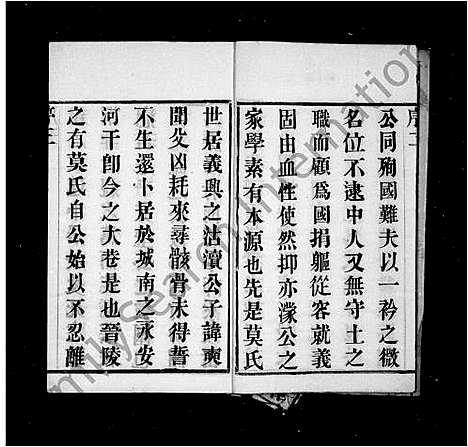 公同殉國難夫以一衿之微
名位不逮中人又無守土之
職而顧爲國捐軀從容就義
固由血性使然抑亦濛公之
家學素有本源也先是莫氏
世居義興之沽瀆公子諱奭
聞父凶耗來尋骸骨未得誓
不生還卜居於城南之永安
河干卽今之大巷是也晉陵
之有莫氏自公始以不忍離